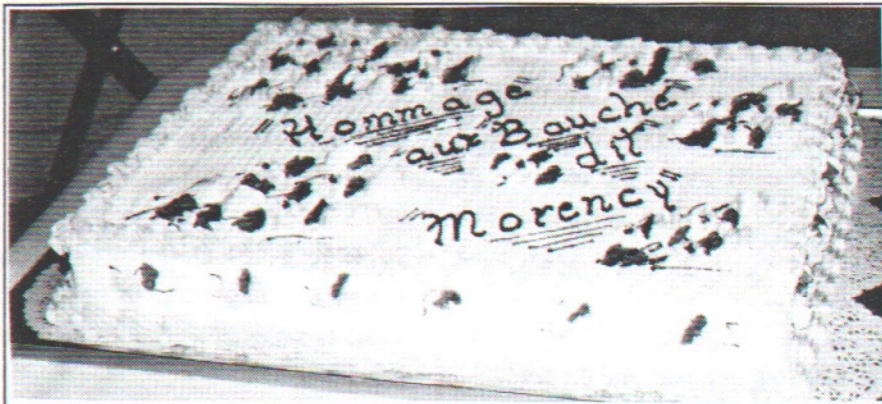 "Hommage"
aux Bauché
dit
"Morency"